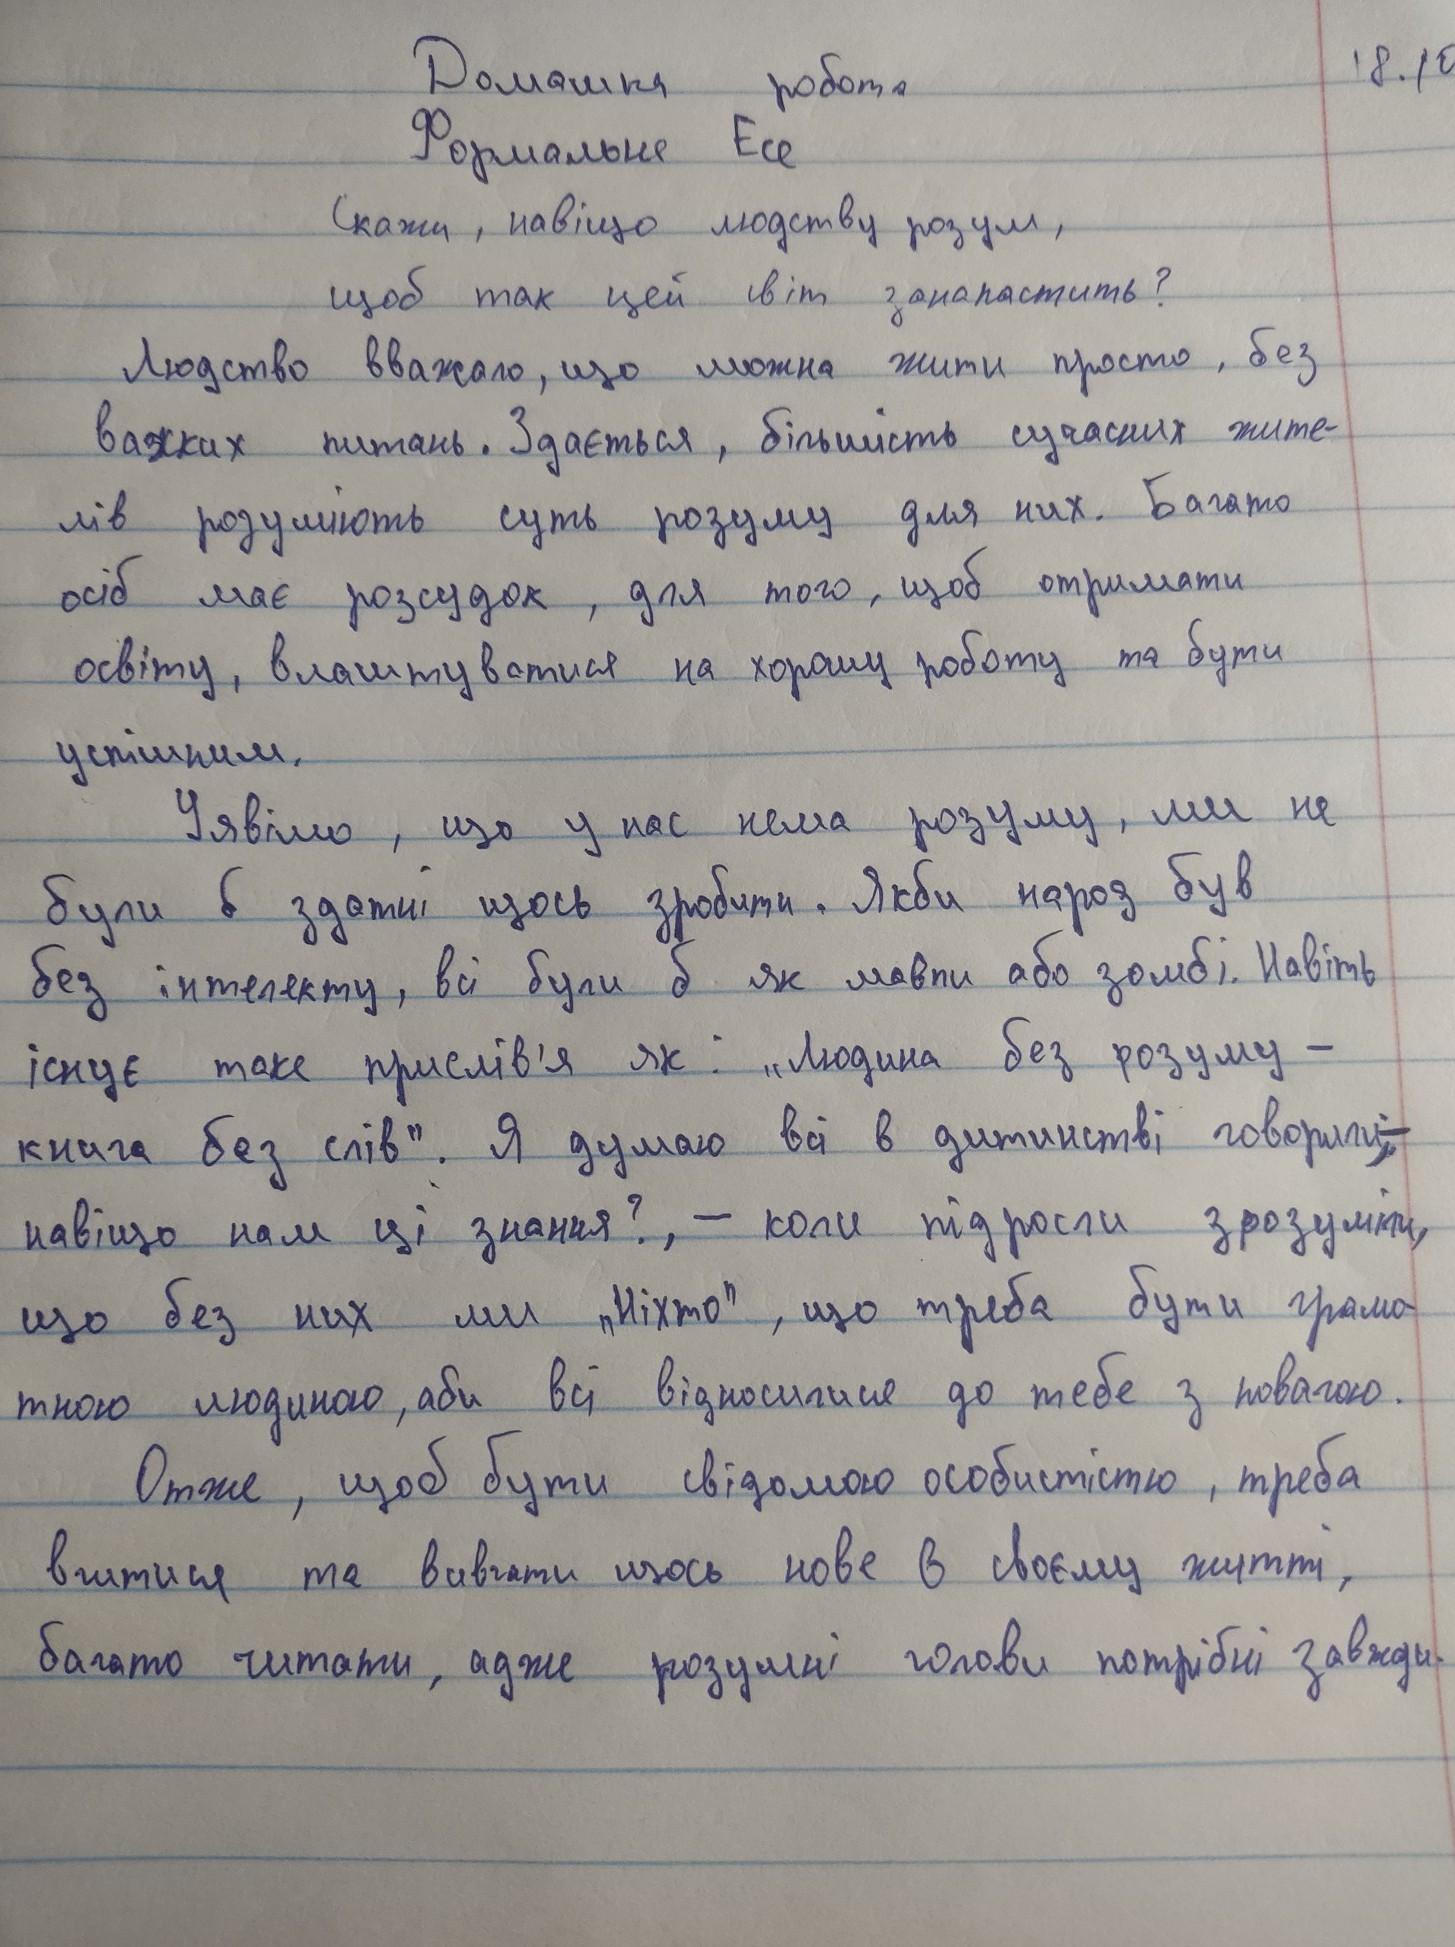 Домашня робота
18.10
Формальне Есе
Скажи, навіщо людству розум,
щоб так цей світ занапастить?
Людство вважало, що можна жити просто, без
важких питань. Здається, більшість сучасних жите-
лів розуміють суть розуму для них. Багато
осіб має розсудок, для того, щоб отримати
освіту, влаштуватися на хорошу роботу та бути
успішним.
Уявімо, що у нас нема розуму, ми не
були б здатні щось зробити. Якби народ був
без інтелекту, всі були б як мавпи або зомбі. Навіть
існує таке прислів'я як: „Людина без розуму –
книга без слів". Я думаю всі в дитинстві говорили;–
навіщо нам ці знання?, – коли підросли зрозуміли,
що без них ми „Ніхто", що треба бути грамо-
тною людиною, аби всі відносилися до тебе з повагою.
Отже, щоб бути свідомою особистістю, треба
вчитися та вивчати щось нове в своєму житті,
багато читати, адже розумні голови потрібні завжди.